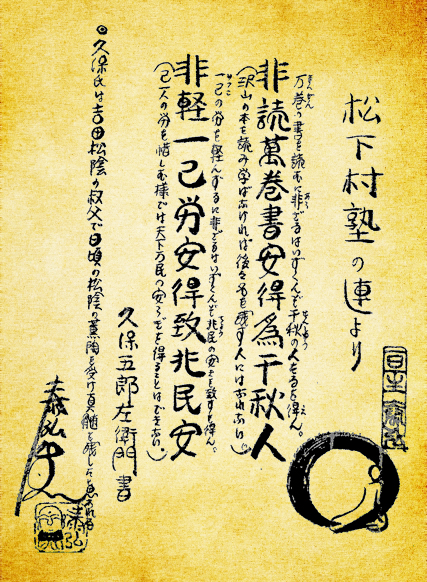 松下村塾の連より
万巻の書を読むに非ざるよりはいずくんぞ千秋の人たるを得ん。
非読萬巻書安得為千秋人
(沢山の本を読み学ばなければ後々名を残す人にはなれない)
一己の労を軽んずるに非ざるよりはいずくんぞ兆民の安きを致すを得ん。
非軽一己労安得致兆民安
(己一人の労を惜しむ様では天下万民の安らぎを得ることはできない。)
久保五郎左衛門書
久保氏は吉田松陰の叔父で日頃の松陰の薫陶を受け真髄を残したと思われる
泰弘